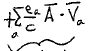 +∑ₐ eₐ/c A̅ · V̅ₐ